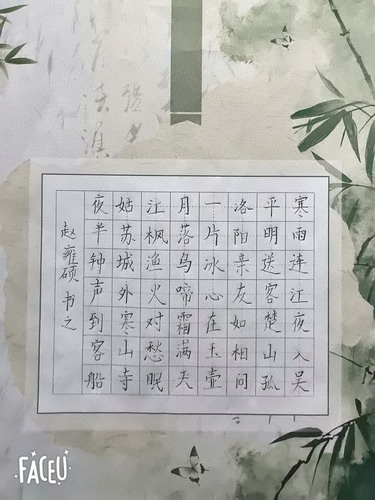 寒雨连江夜入吴
平明送客楚山孤
洛阳亲友如相问
一片冰心在玉壶
月落乌啼霜满天
江枫渔火对愁眠
姑苏城外寒山寺
夜半钟声到客船
赵雍硕书之
FACEU